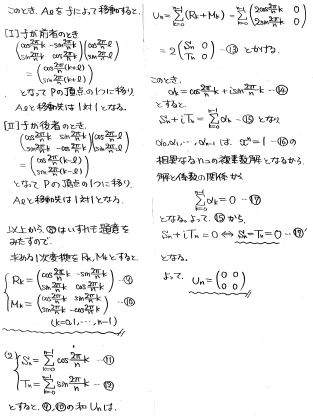 このとき、Alをfによって移動すると、
[I] fが前者のとき
(cos 2π/n k -sin 2π/n k
sin 2π/n k cos 2π/n k)(cos 2π/n l
sin 2π/n l)
= (cos 2π/n (k+l)
sin 2π/n (k+l))
となって Pの頂点の1つに移り、
Alと移動先は1対1となる。
[II] fが後者のとき、
(cos 2π/n k sin 2π/n k
sin 2π/n k -cos 2π/n k)(cos 2π/n l
sin 2π/n l)
= (cos 2π/n (k-l)
sin 2π/n (k-l))
となって Pの頂点の1つに移り、
Alと移動先は1対1となる。
以上から、はいずれも題意を
みたすので、
求める1次変換を Rk, Mkとすると、
Rk = (cos 2π/n k -sin 2π/n k
sin 2π/n k cos 2π/n k) …⑨
Mk = (cos 2π/n k sin 2π/n k
sin 2π/n k -cos 2π/n k) …⑩
(k=0,1,…,n-1)
(2) Sn = Σ[k=0, n-1] cos 2π/n k …⑪
Tn = Σ[k=0, n-1] sin 2π/n k …⑫
とすると、⑨,⑩の和 Unは、
Un = Σ[k=0, n-1] (Rk+Mk) = Σ[k=0, n-1] (2cos 2π/n k 0
2sin 2π/n k 0)
= 2(Sn 0
Tn 0) …⑬ とかける。
このとき、
αk = cos 2π/n k + i sin 2π/n k …⑭
とすると、
Sn + iTn = Σ[k=0, n-1] αk …⑮ となり
α0, α1, …, αn-1 は、x^n = 1 …⑯の
相異なるn個の複素数解となるから、
解と係数の関係から
Σ[k=0, n-1] αk = 0 …⑰
となる。よって、⑮から、
Sn + iTn = 0 ⇔ Sn = Tn = 0 …⑰'
となる。
よって、 Un = (0 0
0 0)